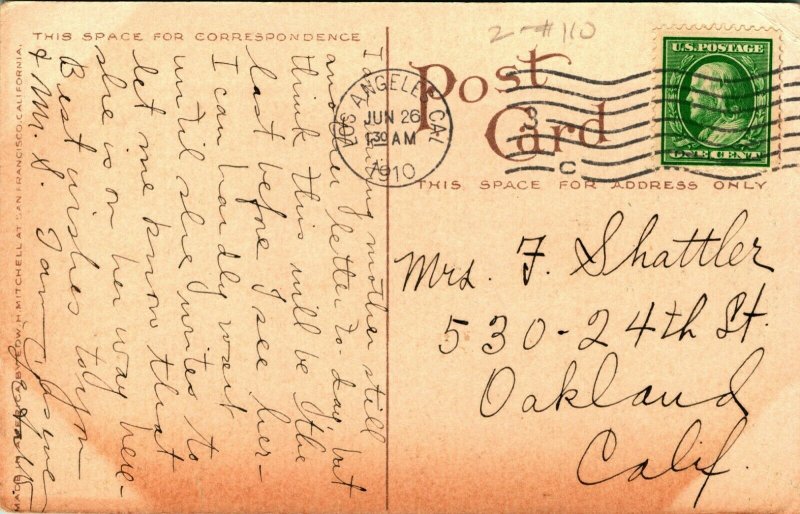 2-#110
THIS SPACE FOR CORRESPONDENCE
Post
Card
THIS SPACE FOR ADDRESS ONLY
U.S. POSTAGE
ONE CENT
LOS ANGELES, CAL
JUN 26
1 30 AM
1910
C
I mother still
another letter to-day but
think this will be the
last before I see her-
I can hardly wait
until she writes to
let me know that
she is on her way here-
Best wishes to you
& Mr. S. I am
Mrs. F. Shattler
530-24th St.
Oakland
Calif.
BY EDW. H. MITCHELL AT SAN FRANCISCO, CALIFORNIA.